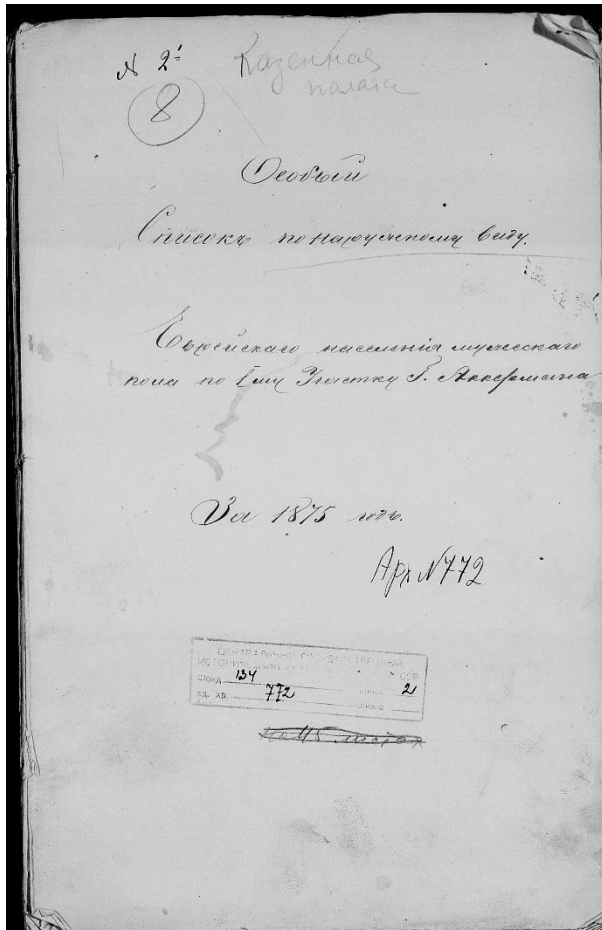 № 2й
Казенная
палата
8
Особый
Списокъ по наружному виду.
Еврейскаго населенія мужескаго
пола по 1му Участку Г. Аккермана
За 1875 годъ.
Арх N 772
ЦЕНТРАЛЬНЫЙ ГОСУДАРСТВЕННЫЙ
ИСТОРИЧЕСКИЙ ССР
Фонд 134 опись 2
ед. хр. 772
на 45 листах